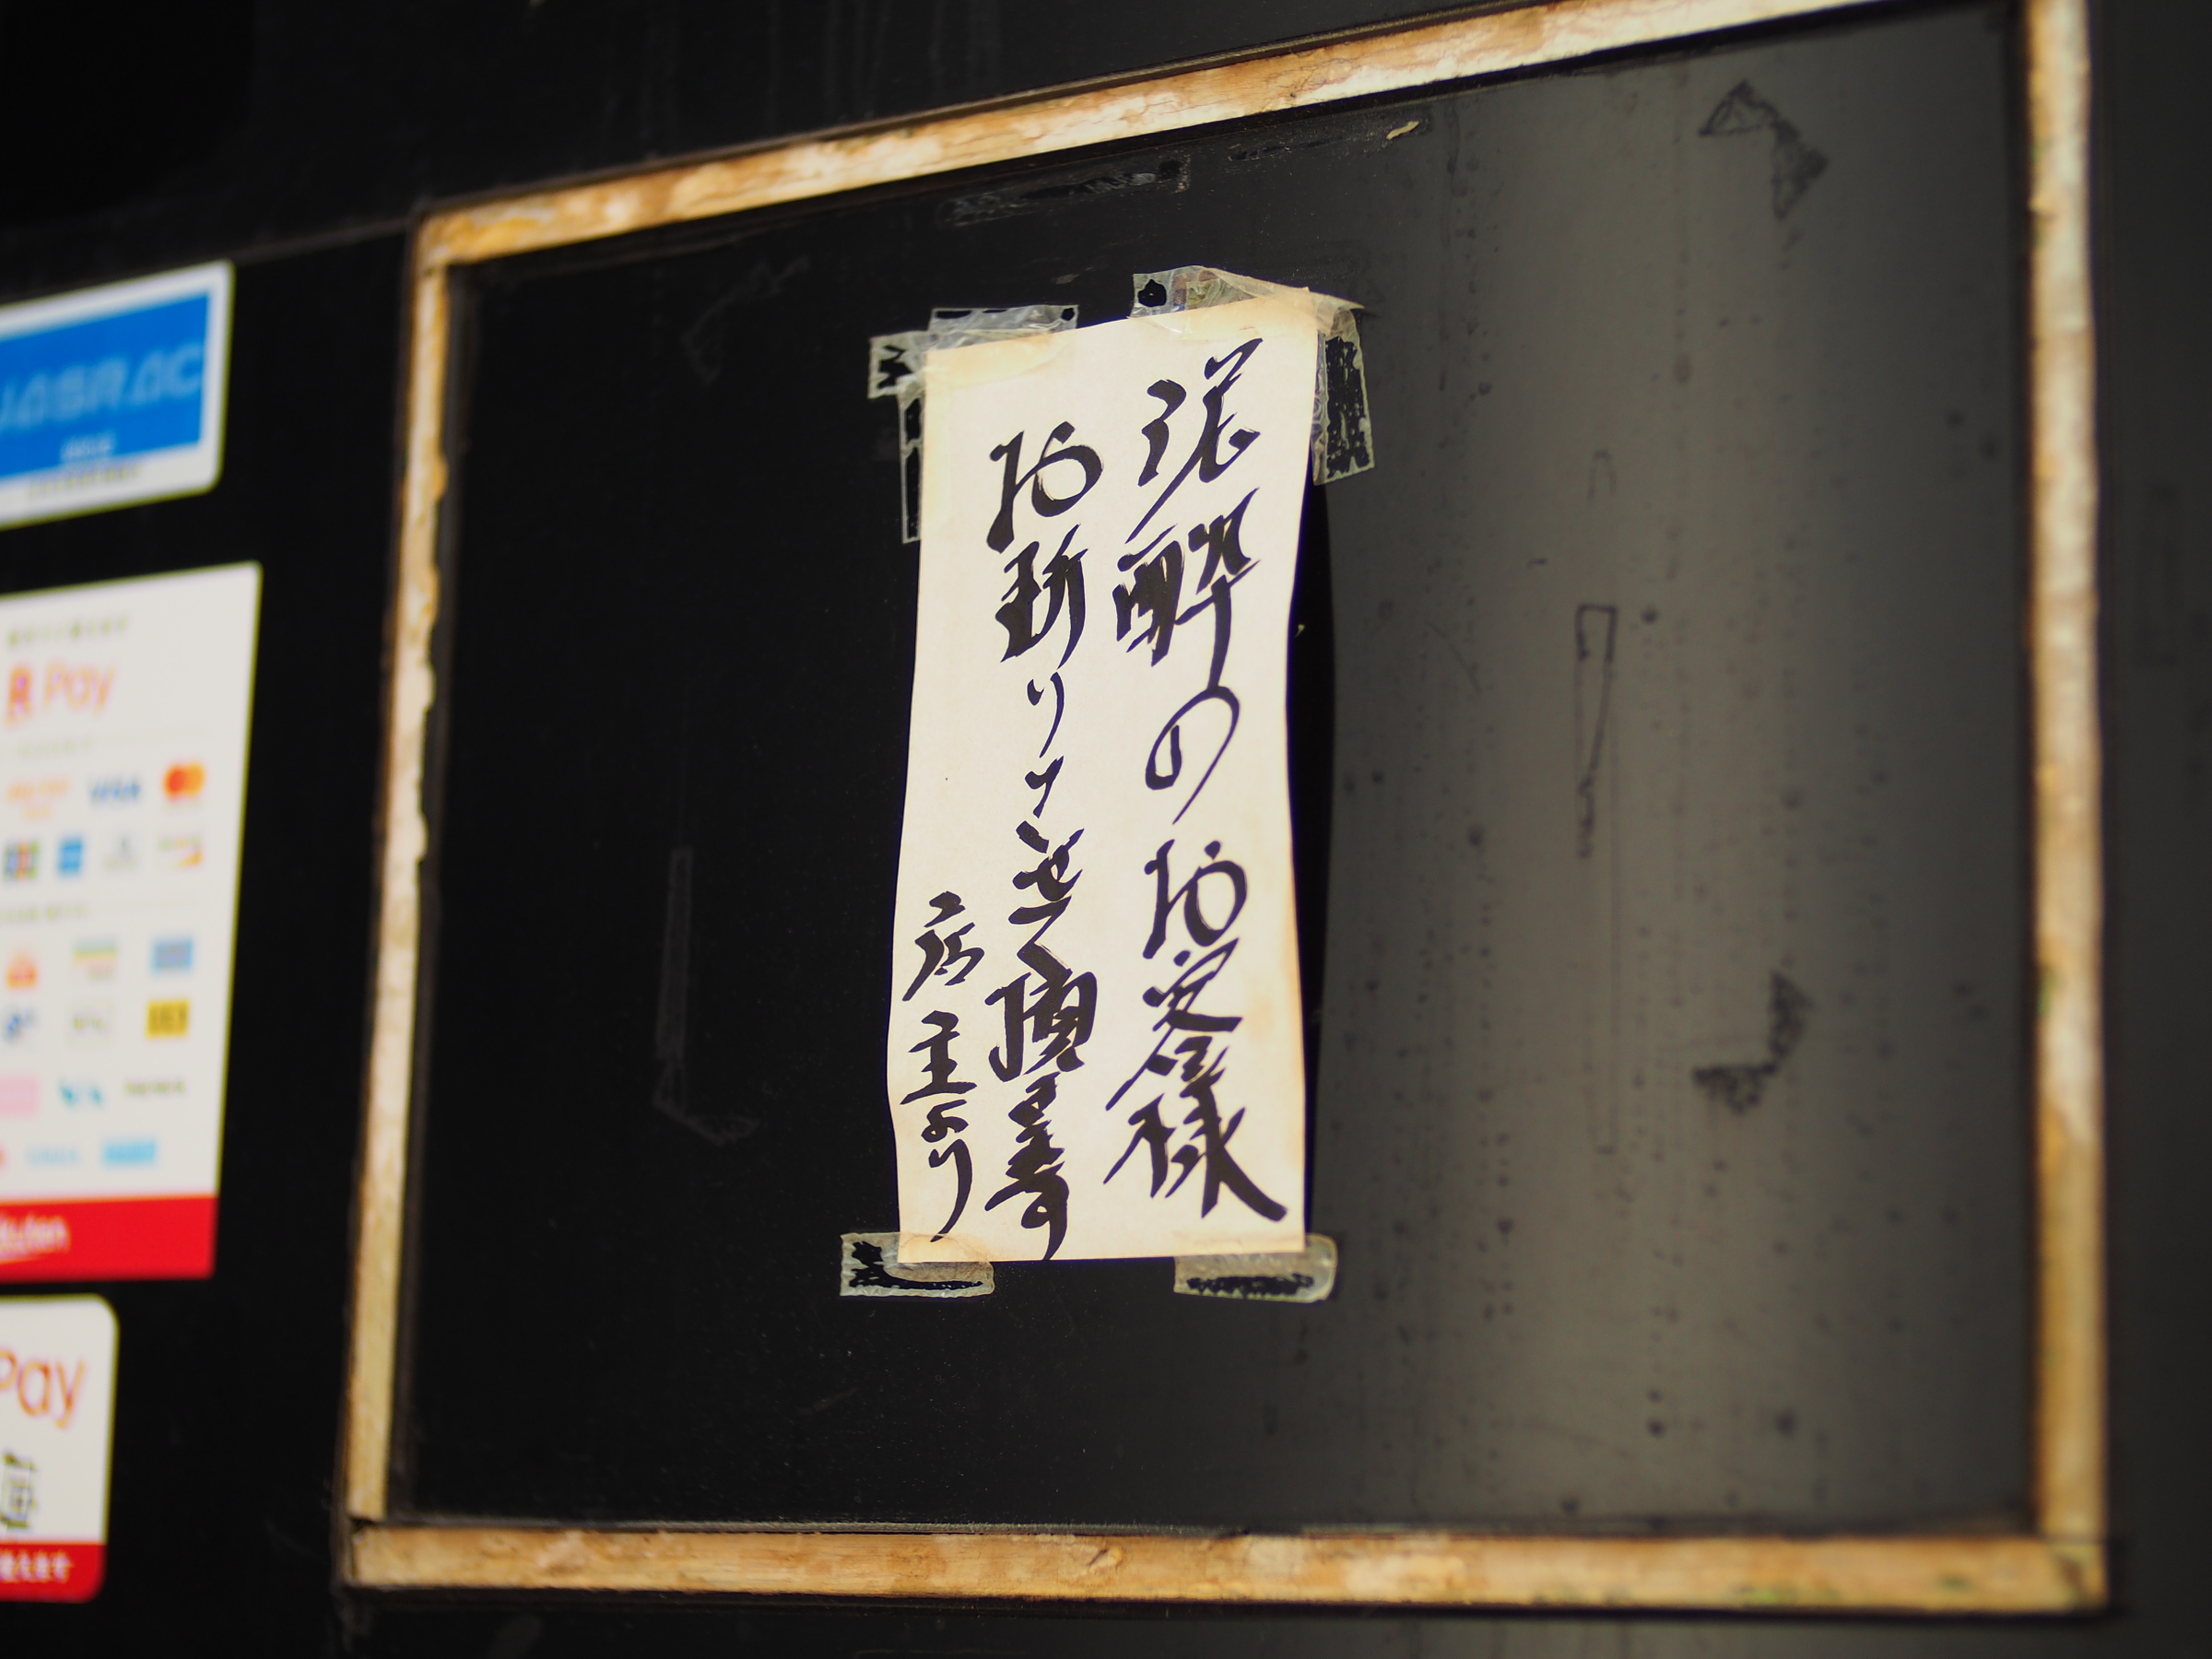 泥酔のお客様
お断りさせて頂きます
店主より
JASRAC
R Pay
VISA
Pay
使えます